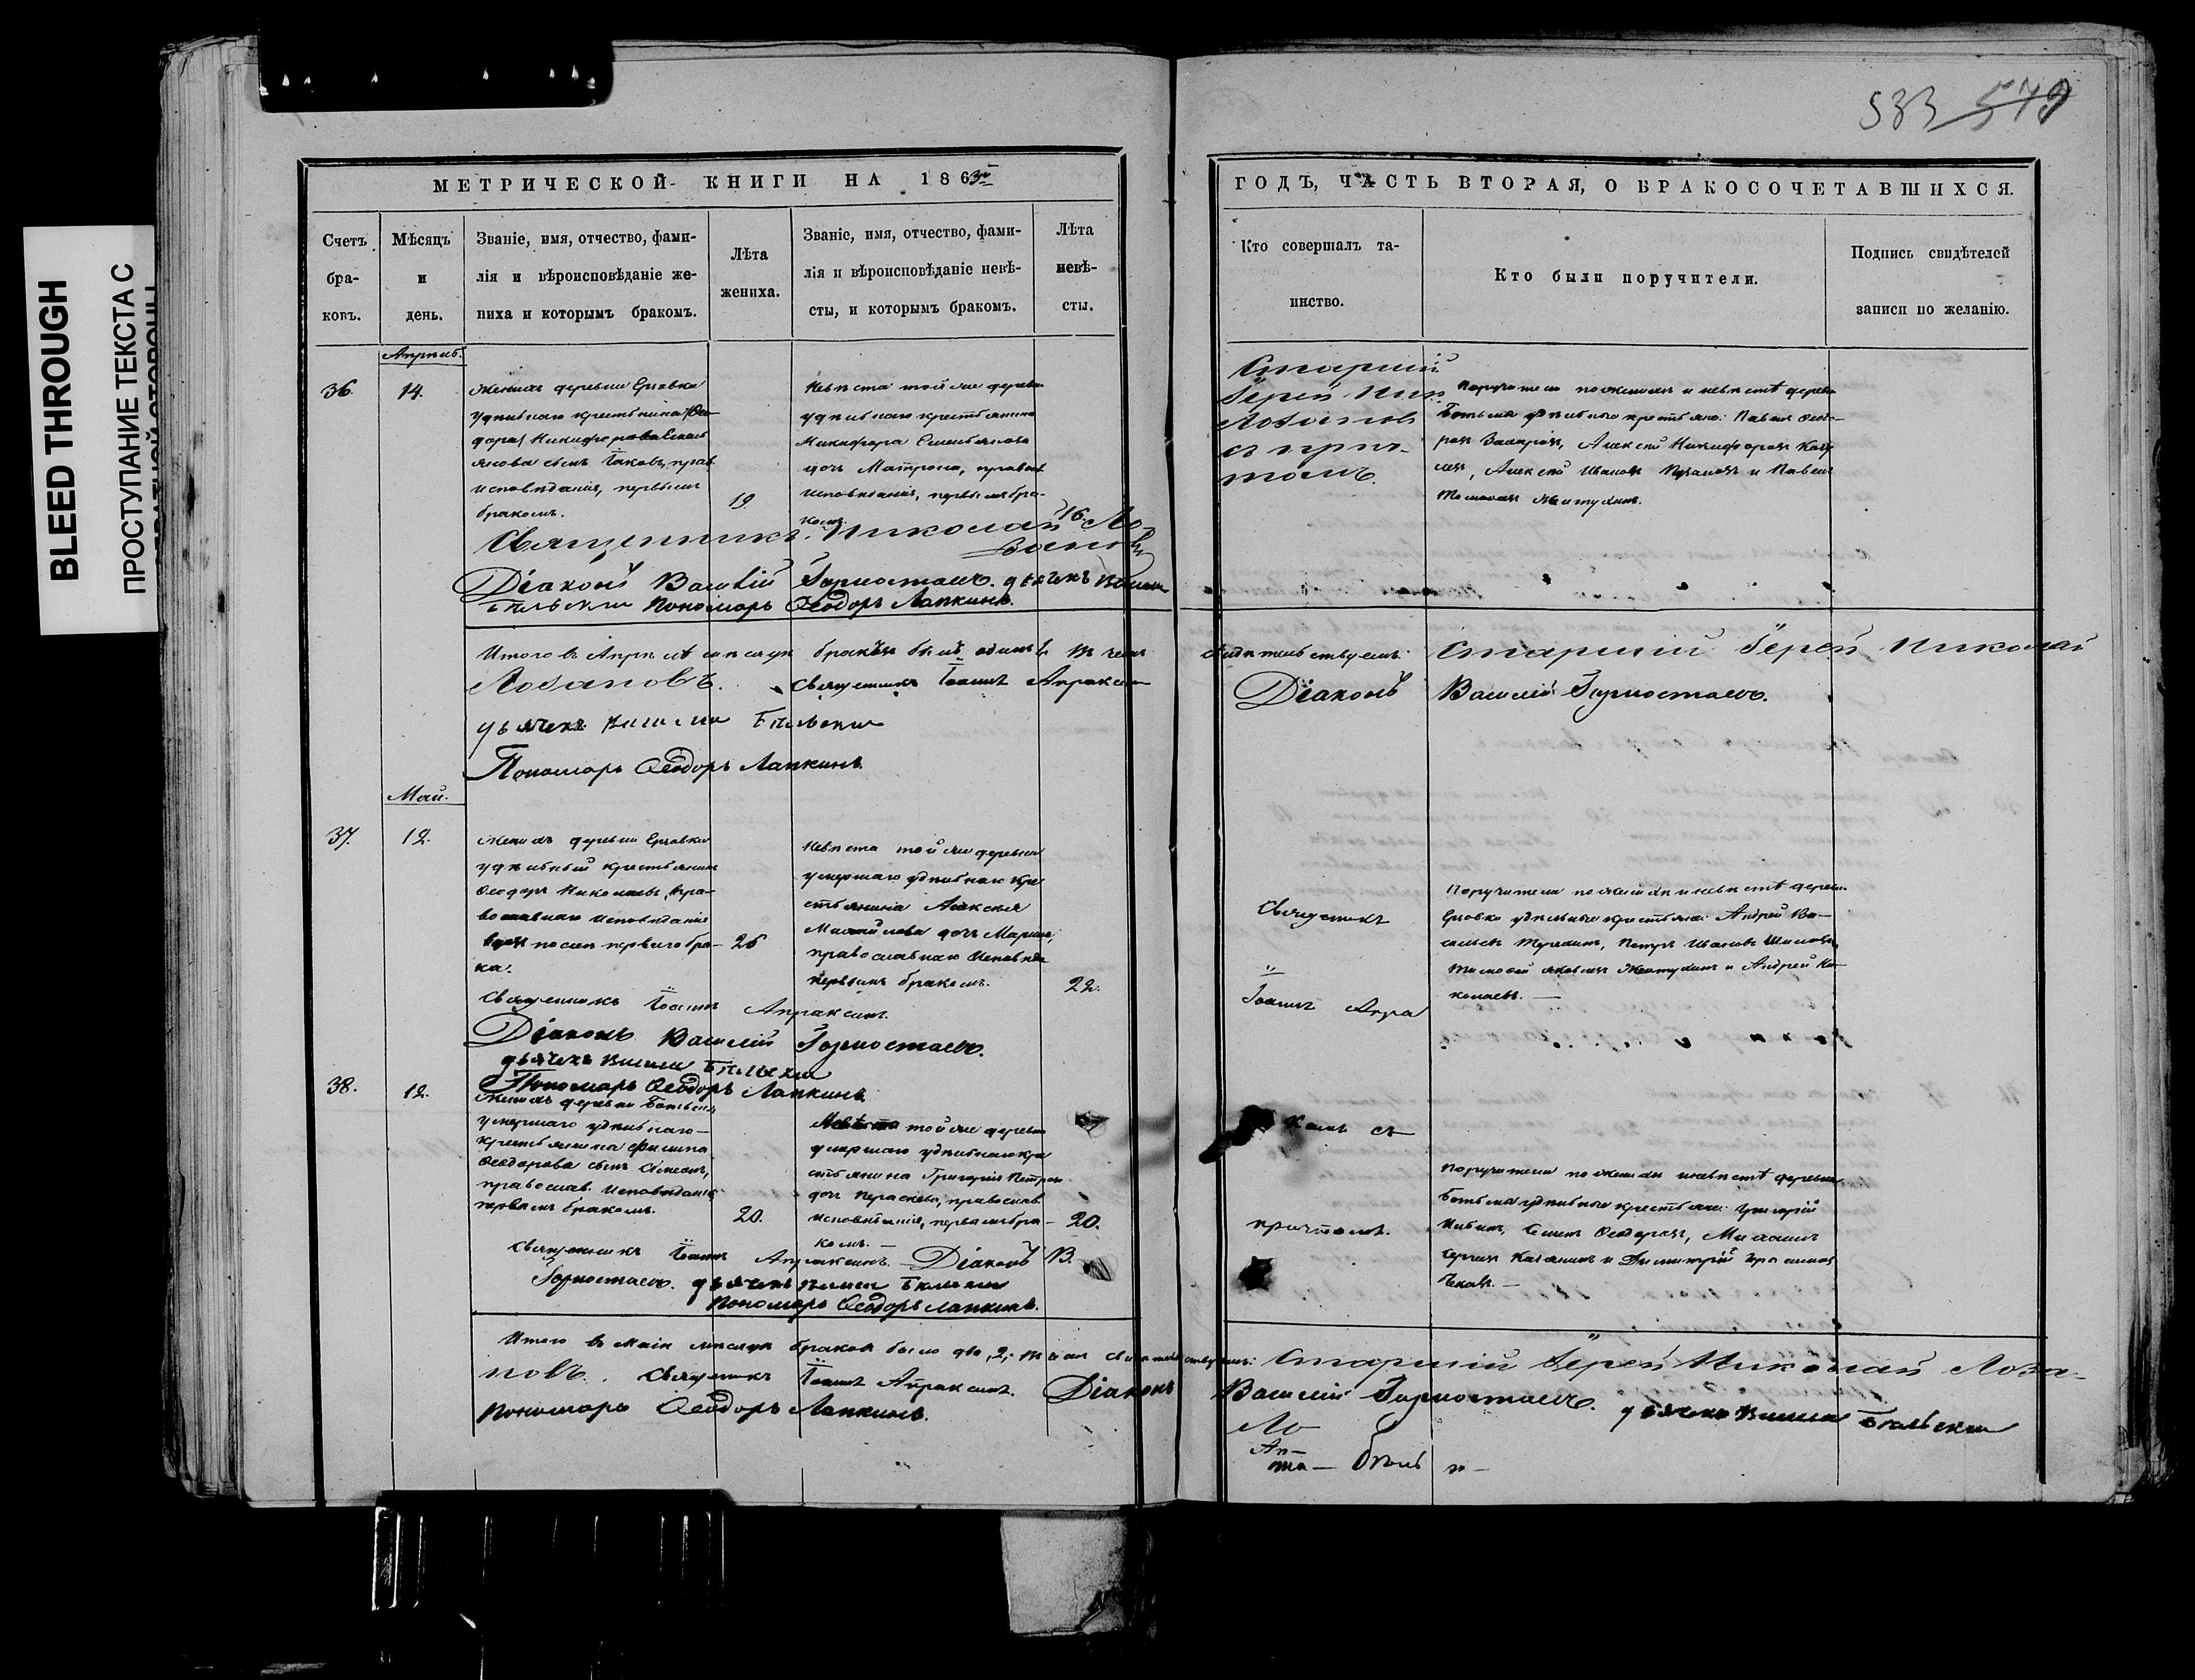 BLEED THROUGH
ПРОСТУПАНИЕ ТЕКСТА С
533 579
МЕТРИЧЕСКОЙ КНИГИ НА 1863й
Счетъ бра- ковъ.
Мѣсяцъ и день.
Званіе, имя, отчество, фами-
лія и вѣроисповѣданіе же-
ниха и которымъ бракомъ.
Лѣта
жениха.
Званіе, имя, отчество, фами-
лія и вѣроисповѣданіе невѣ-
сты, и которымъ бракомъ.
Лѣта
невѣ-
сты.
ГОДЪ, ЧАСТЬ ВТОРАЯ, О БРАКОСОЧЕТАВШИХСЯ.
Кто совершалъ та-
инство.
Кто были поручители.
Подпись свидѣтелей
записи по желанію.
36.
14.
Женихъ деревни Ерзовки
удѣльнаго крестьянина Ѳео-
дора Никифорова
сынъ Іаковъ, прав.
исповѣданія, первымъ
бракомъ.
19.
Невѣста той же деревни
удѣльнаго крестьянина
Никифора Емельянова
дочь Матрона, правос.
исповѣданія, первымъ бра-
комъ.
16.
Старшій
Іерей Ник.
Лозановъ
съ прич-
томъ.
Поручители по женихѣ и невѣстѣ деревни
Ботьма удѣльные крестьяне: Павелъ Ѳеодо-
ровъ Захаровъ, Алексѣй Никифоровъ
Алексѣй Ивановъ и Павелъ
Священникъ Николай Ло-
зановъ
Діаконъ Василій Горностаевъ. дьячекъ
Бѣльскій Пономарь Ѳеодоръ Лапкинъ.
Итого въ Апрѣлѣ мѣсяцѣ браковъ былъ одинъ 1. Въ чемъ свидѣтельствуемъ: Старшій Іерей Николай
Лозановъ. Священникъ Іоаннъ Апраксинъ Діаконъ Василій Горностаевъ.
дьячекъ Бѣльскій
Пономарь Ѳеодоръ Лапкинъ.
Май.
37.
12.
Женихъ деревни Ерзовки
удѣльный крестьянинъ
Ѳеодоръ Николаевъ, пра-
вославнаго исповѣданія
вдовъ послѣ перваго бра-
ка.
26
Невѣста той же деревни
умершаго удѣльнаго кре-
стьянина Алексея
Михайлова дочь Марина,
православнаго исповѣда
первымъ бракомъ.
22.
Священникъ
Іоаннъ Апра
Поручители по женихѣ и невѣстѣ деревни
Ерзовки удѣльные крестьяне: Андрей Ва-
сильевъ Петръ Ивановъ Шиловъ,
Тимофей Яковлевъ и Андрей Ни-
колаевъ. —
Священникъ Іоаннъ Апраксинъ.
Діаконъ Василій Горностаевъ.
дьячекъ Бѣльскій
Пономарь Ѳеодоръ Лапкинъ
38.
12.
Женихъ деревни Ботьмы
умершаго удѣльнаго
крестьянина Филиппа
Ѳеодорова сынъ Симеонъ,
православ. исповѣданія
первымъ бракомъ.
20.
Невѣста той же деревни
умершаго удѣльнаго кре
стьянина Григорія Петрова
дочь Параскева, православ.
исповѣданія, первымъ бра-
комъ. —
20.
съ
причтомъ.
Поручители по женихѣ и невѣстѣ деревни
Ботьма удѣльные крестьяне: Григорій
Семенъ Ѳеодоровъ, Михаилъ
Сергѣевъ и Димитрій
Священникъ Іоаннъ Апраксинъ. — Діаконъ В.
Горностаевъ. дьячекъ Бѣльскій
Пономарь Ѳеодоръ Лапкинъ.
Итого въ Маіѣ мѣсяцѣ браковъ было два, 2, въ чемъ свидѣтельствуемъ: Старшій Іерей Николай Лоза-
новъ. Священникъ Іоаннъ Апраксинъ. Діаконъ Василій Горностаевъ. дьячекъ Бѣльскій
Пономарь Ѳеодоръ Лапкинъ.
Ло